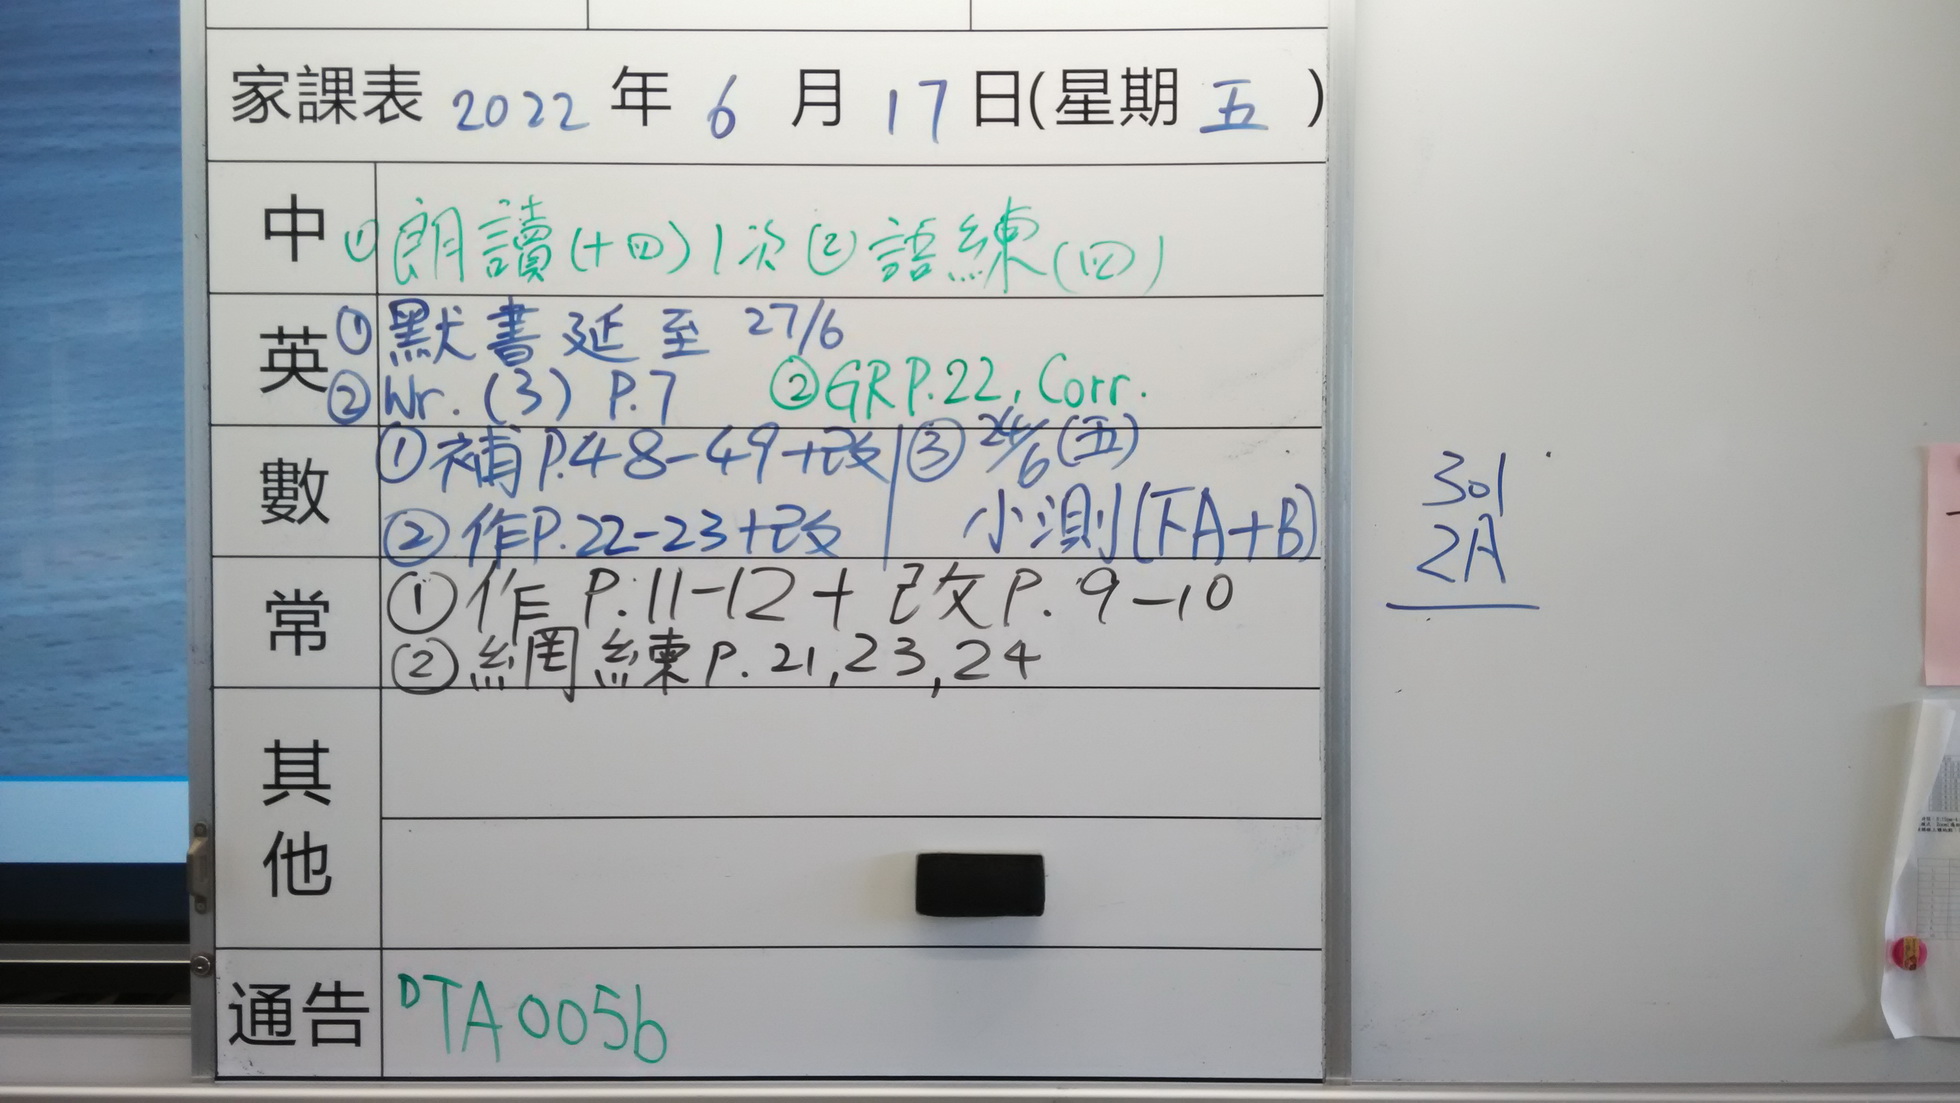 家課表 2022 年 6 月 17 日(星期 五 )
中 ① 朗讀(十四)1次 ② 語練(四)
英 ① 默書延至 27/6
② Wr. (3) P.7 ② GR P.22, Corr.
數 ① 補P.48-49+改 ③ 24/6(五)
② 作P.22-23+改 小測(下A+B)
常 ① 作 P.11-12 + 改 P.9-10
② 網練 P.21,23,24
其他
通告 TA005b
301
2A